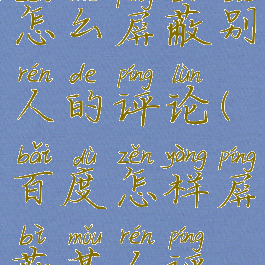 怎么屏蔽别
rén de píng lùn
人的评论(
bǎi dù zěn yàng píng
百度怎样屏
bì mǒu rén píng